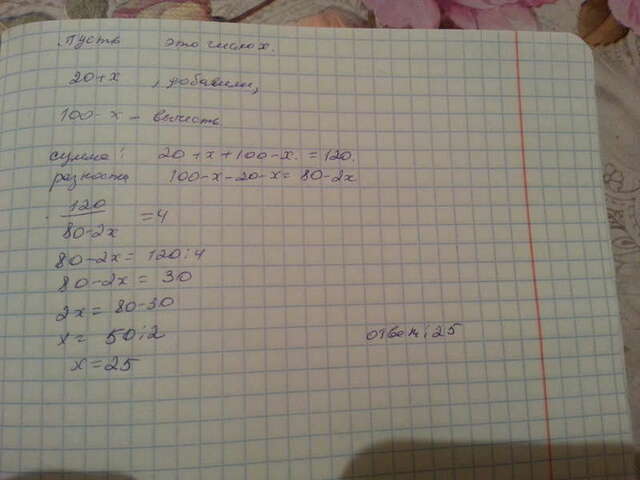 Пусть это число x.
20+x, добавили,
100-x - вычесть.
сумма: 20+x+100-x. = 120.
разность 100-x-20-x= 80-2x
120
80-2x
=4
80-2x= 120:4
80-2x = 30
2x = 80-30
x= 50:2
x=25
ответ: 25